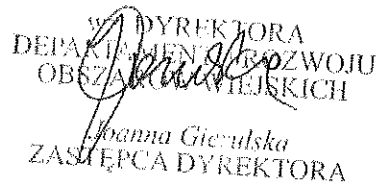 DYREKTORA
DEPARTAMENTU ROZWOJU
OBSZARÓW WIEJSKICH
Joanna Gierulska
ZASTĘPCA DYREKTORA